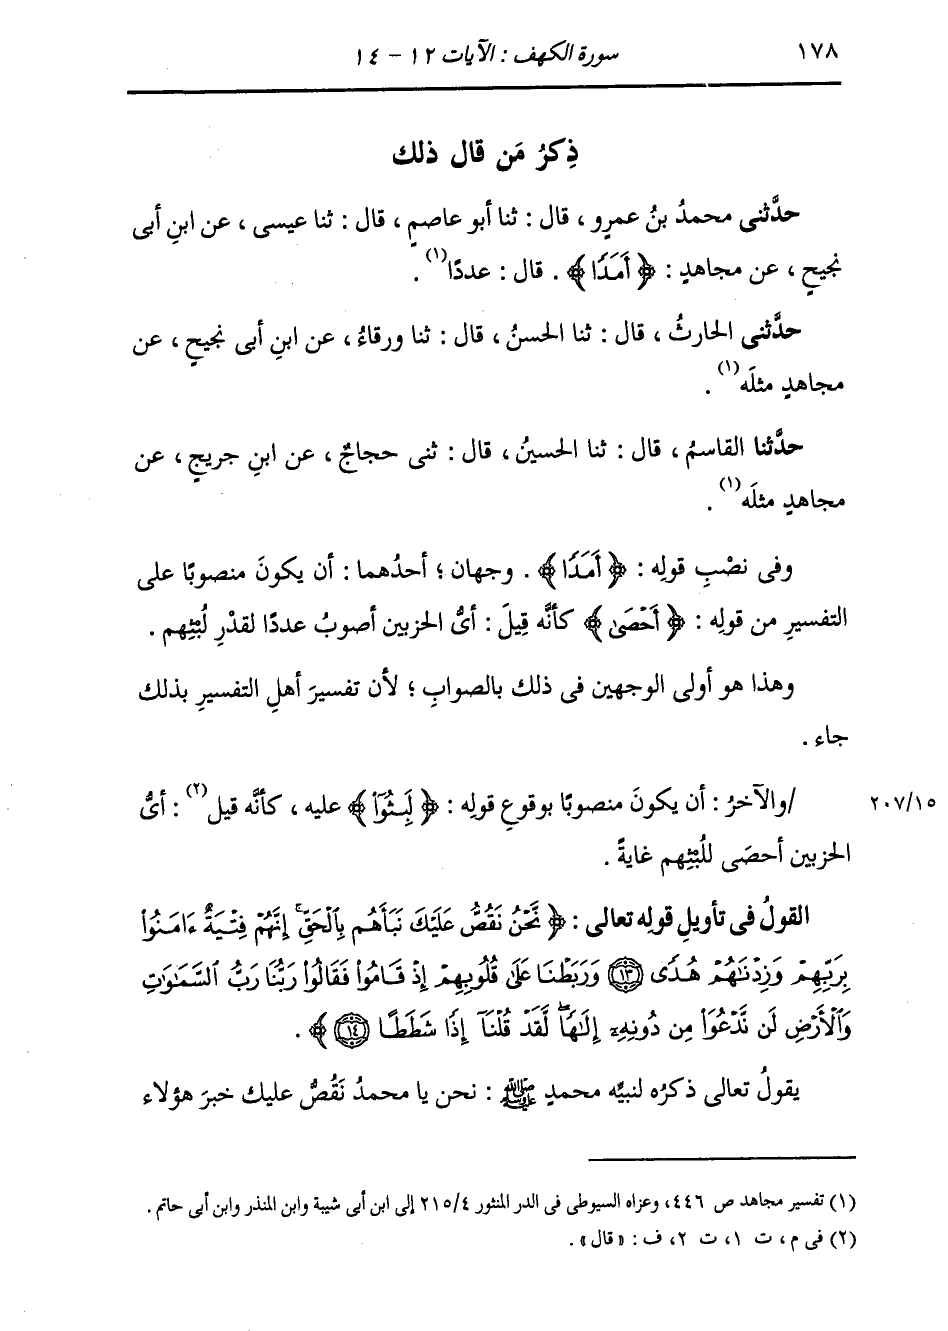 ١٧٨ سورة الكهف : الآيات ١٢ - ١٤
ذِكرُ مَن قال ذلك
حدَّثنى محمدُ بنُ عمرٍو ، قال : ثنا أبو عاصمٍ ، قال : ثنا عيسى ، عن ابنِ أبى
نجيحٍ ، عن مجاهدٍ : ﴿ أَمَدًا ﴾ . قال : عددًا(١) .
حدَّثنى الحارثُ ، قال : ثنا الحسنُ ، قال : ثنا ورقاءُ ، عن ابنِ أبى نجيحٍ ، عن
مجاهدٍ مثلَه(١) .
حدَّثنا القاسمُ ، قال : ثنا الحسينُ ، قال : ثنى حجاجٌ ، عن ابنِ جريجٍ ، عن
مجاهدٍ مثلَه(١) .
وفى نصْبِ قولِه : ﴿ أَمَدًا ﴾ . وجهان ؛ أحدُهما : أن يكونَ منصوبًا على
التفسيرِ من قولِه : ﴿ أَحْصَىٰ ﴾ كأنَّه قِيلَ : أىُّ الحزبين أصوبُ عددًا لقدْرِ لُبْثِهم .
وهذا هو أولى الوجهين فى ذلك بالصوابِ ؛ لأن تفسيرَ أهلِ التفسيرِ بذلك
جاء .
٢٠٧/١٥ /والآخرُ : أن يكونَ منصوبًا بوقوعِ قولِه : ﴿ لَبِثُوٓا۟ ﴾ عليه ، كأنَّه قيل(٢) : أىُّ
الحزبين أحصَى للُبْثِهم غايةً .
القولُ فى تأويلِ قولِه تعالى : ﴿ نَّحْنُ نَقُصُّ عَلَيْكَ نَبَأَهُم بِٱلْحَقِّ ۚ إِنَّهُمْ فِتْيَةٌ ءَامَنُوا۟
بِرَبِّهِمْ وَزِدْنَٰهُمْ هُدًى ١٣ وَرَبَطْنَا عَلَىٰ قُلُوبِهِمْ إِذْ قَامُوا۟ فَقَالُوا۟ رَبُّنَا رَبُّ ٱلسَّمَٰوَٰتِ
وَٱلْأَرْضِ لَن نَّدْعُوَا۟ مِن دُونِهِۦٓ إِلَٰهًا ۖ لَّقَدْ قُلْنَآ إِذًا شَطَطًا ١٤ ﴾ .
يقولُ تعالى ذكرُه لنبيِّه محمدٍ ﷺ : نحن يا محمدُ نَقُصُّ عليك خبرَ هؤلاء
(١) تفسير مجاهد ص ٤٤٦، وعزاه السيوطى فى الدر المنثور ٢١٥/٤ إلى ابن أبى شيبة وابن المنذر وابن أبى حاتم .
(٢) فى م ، ت ١، ت ٢، ف : «قال» .